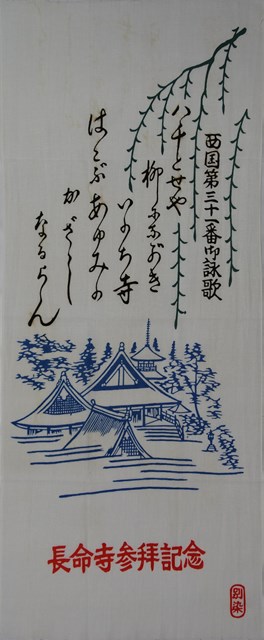 西国第三十一番御詠歌
八千とせや
柳にながき
いのち寺
はこぶあゆみの
かざし
なるらん
長命寺参拝記念
別染